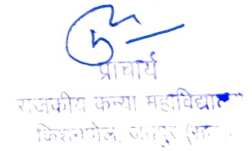 प्राचार्य
राजकीय कन्या महाविद्यालय
जयपुर (राज.